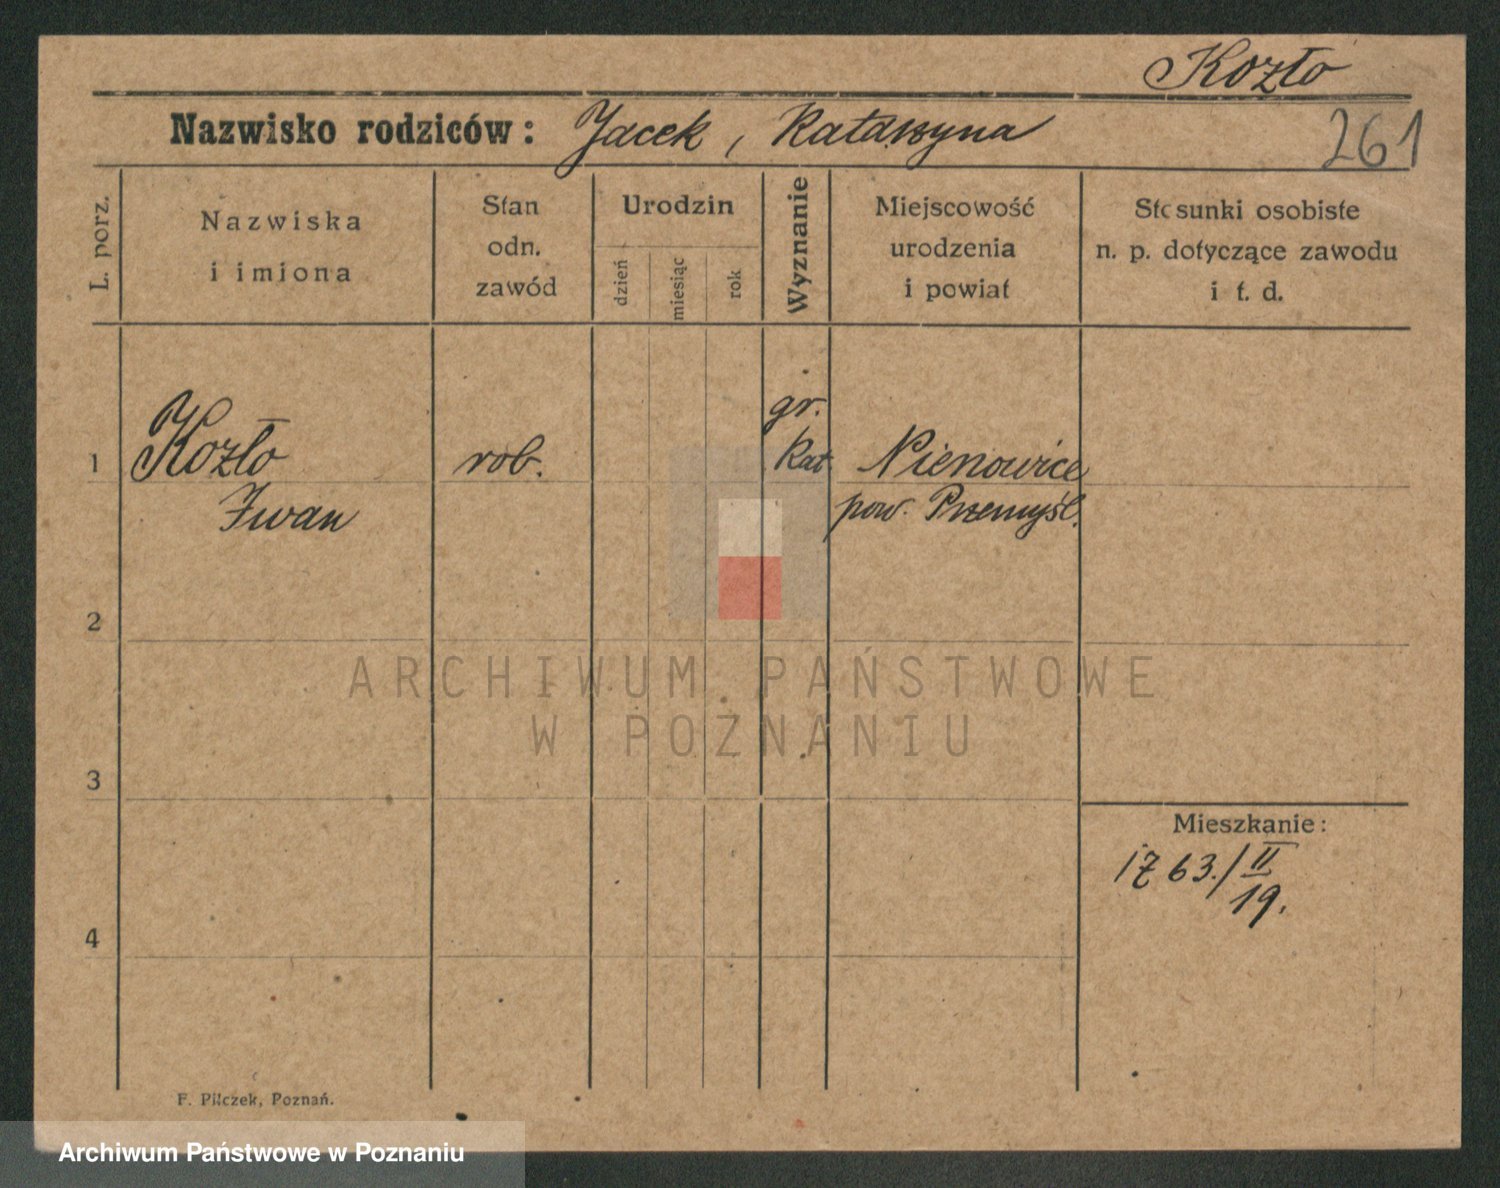 Kozło
Nazwisko rodziców: Jacek, Katarzyna
261
L. porz.
Nazwiska
i imiona
Stan
odn.
zawód
Urodzin
dzień
miesiąc
rok
Wyznanie
Miejscowość
urodzenia
i powiat
Stosunki osobiste
n. p. dotyczące zawodu
i t. d.
1
Kozło
Iwan
rob.
gr.
kat
Nienowice
pow. Przemyśl.
2
3
4
Mieszkanie:
1763./II
19.
F. Pilczek, Poznań.
ARCHIWUM PAŃSTWOWE
W POZNANIU
Archiwum Państwowe w Poznaniu